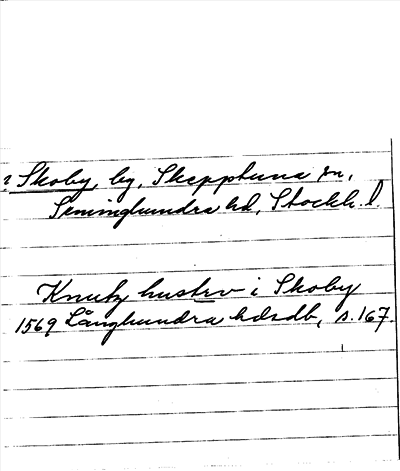 ? Skoby, by, Skepptuna sn,
Seminghundra hd, Stockh. l.
Knutz hustrv i Skoby
1569 Långhundra hdsdb, s. 167.